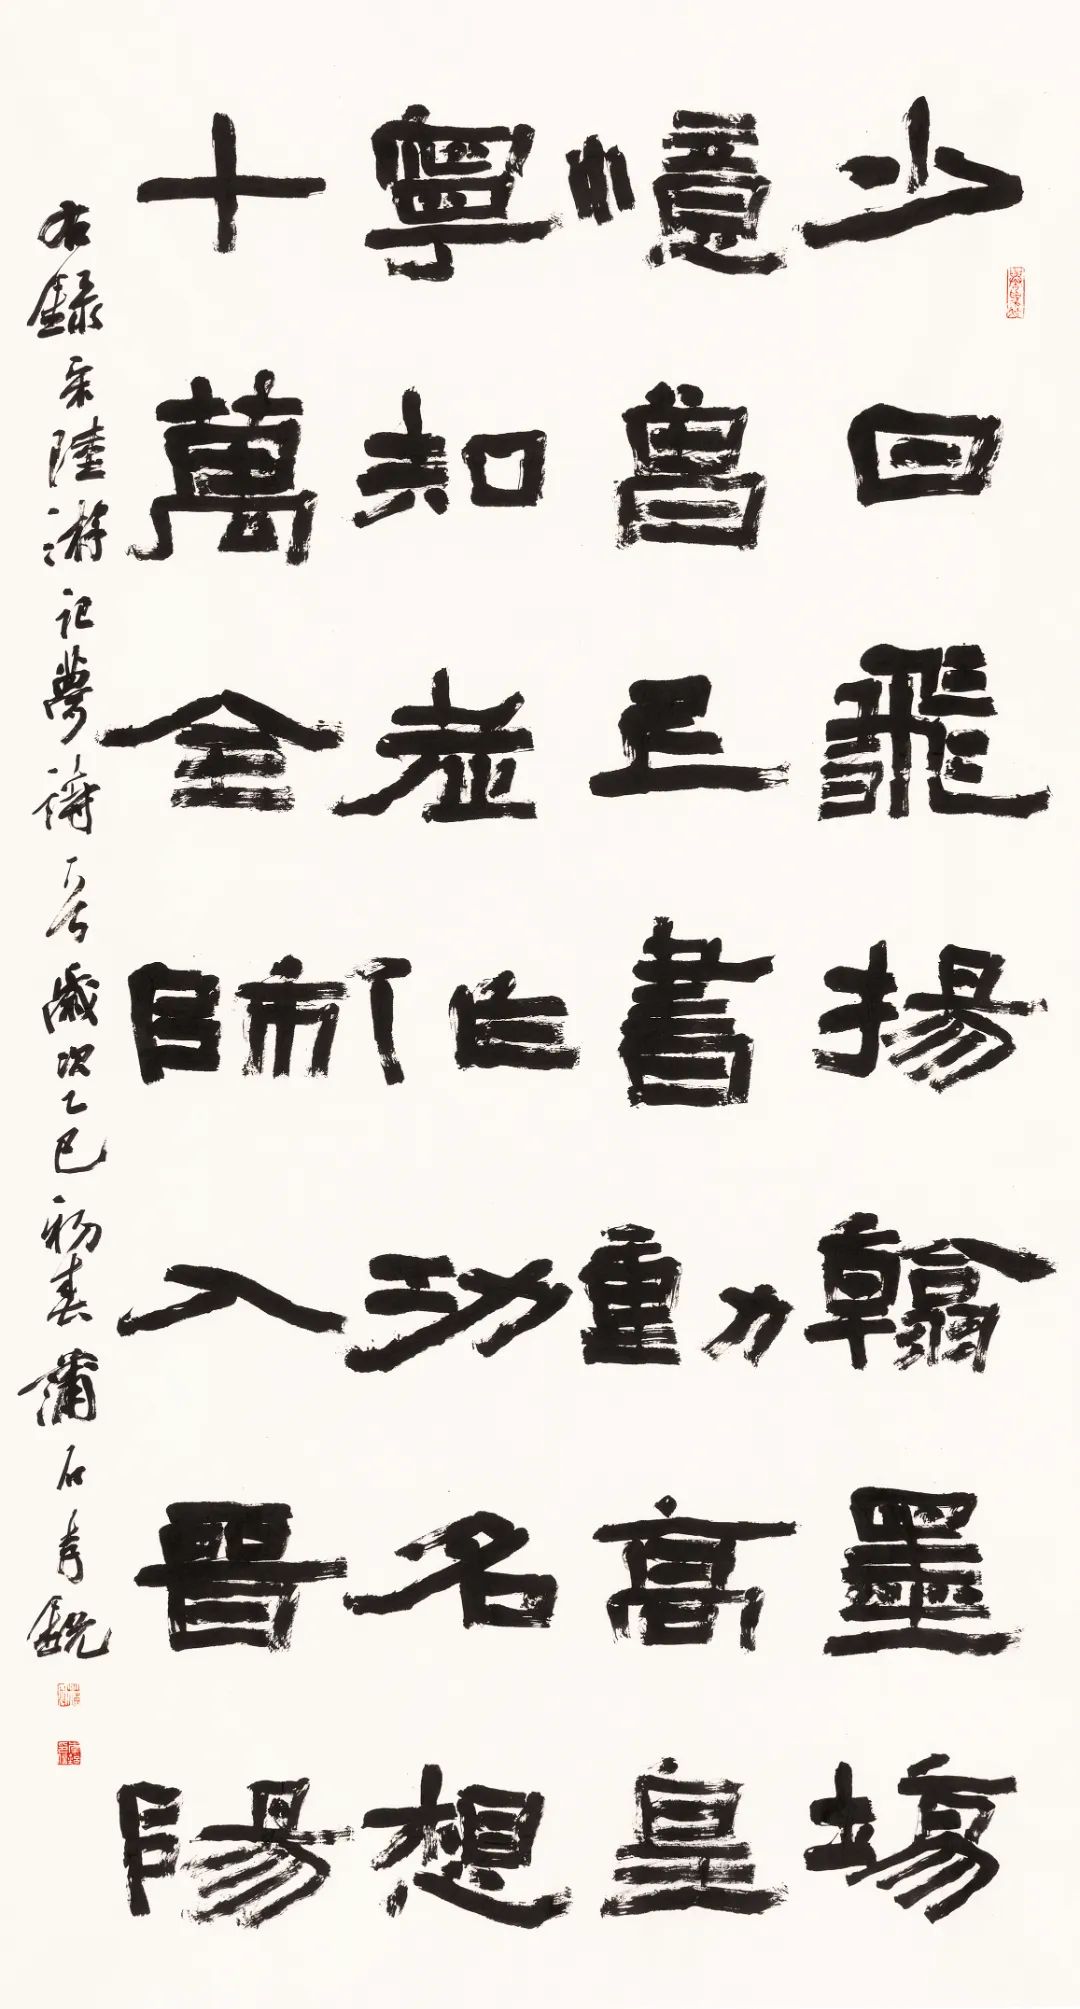 少日飛揚翰墨場
憶曾上書動高皇
寧知老作功名想
十萬全師入晉陽
右錄宋陸游記夢詩一首歲次乙巳初春蒲石